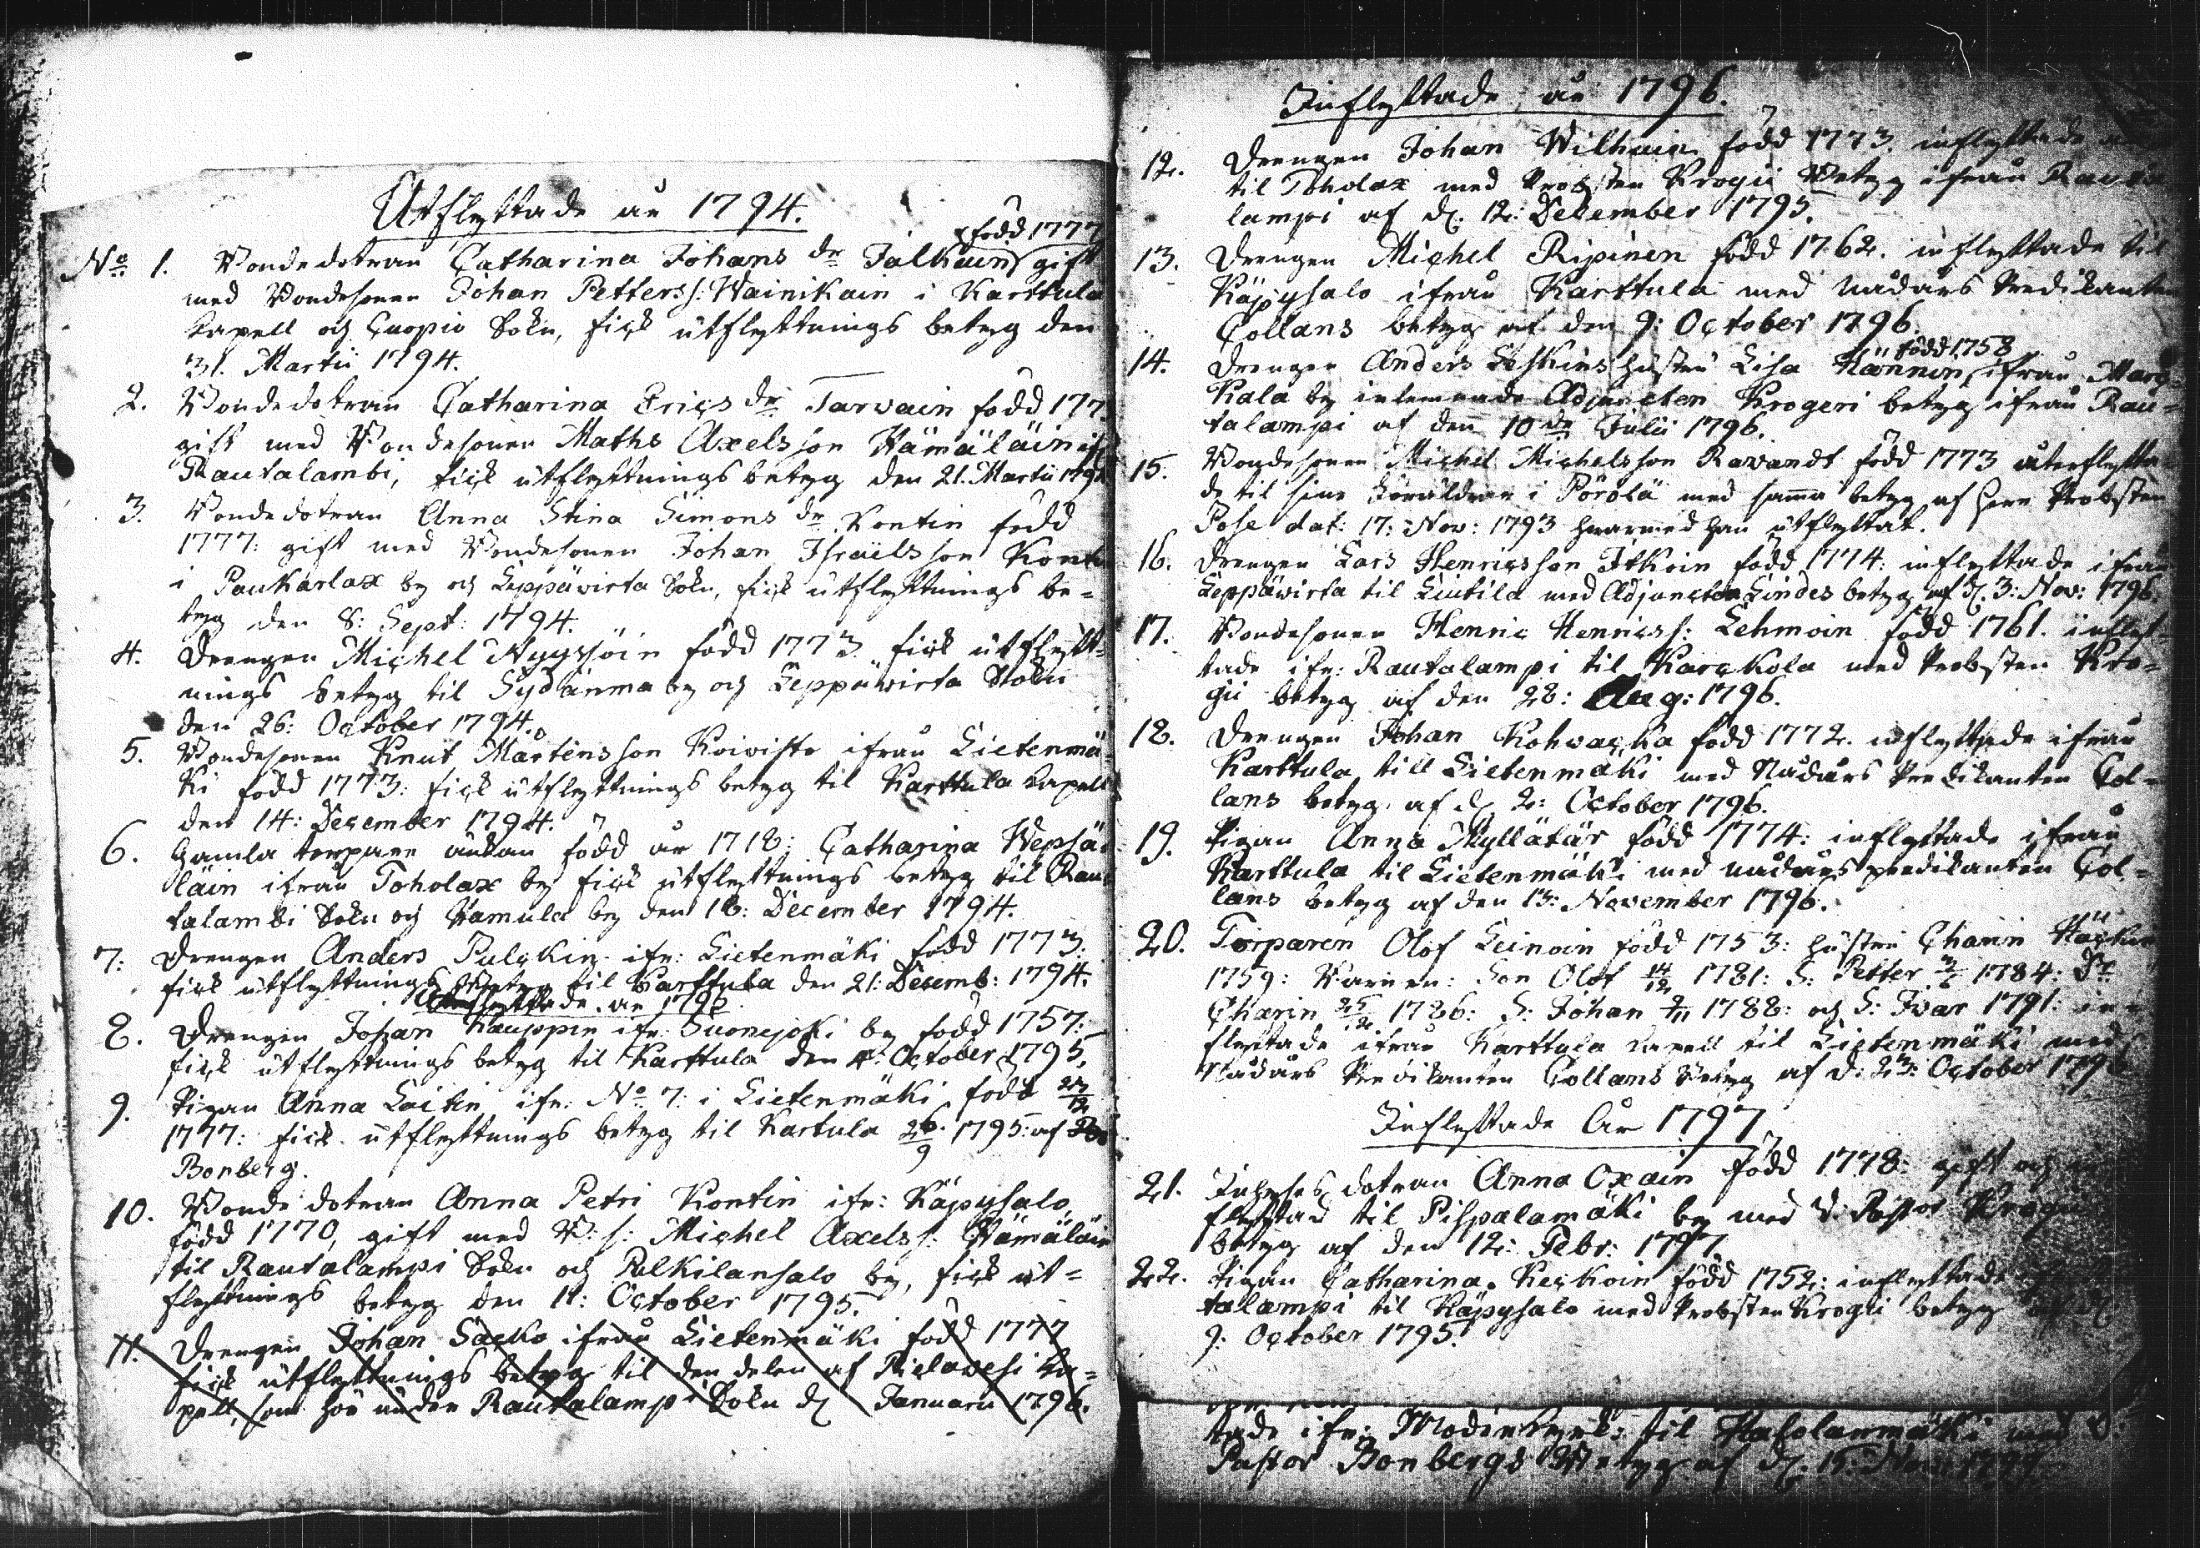 Utflyttade år 1794.
född 1777
No 1. Bondedotran Catharina Johans dr Jalkain gift
med Bondesonen Johan Petterss: Wainikain i Karttula
Capell och Cuopio Sokn, fick utflyttnings betyg den
31. Martii 1794.
2. Bondedotran Catharina Erics dr Tarwain född 177
gift med Bondesonen Maths Axelsson Hämäläin
Rautalambi, fick utflyttnings betyg den 21. Martii 1794
3. Bondedotran Anna Stina Simons dr Kontin född
1777: gift med Bondesonen Johan Israelsson Kont
i Paukarlax by och Leppäwirta Sokn, fick utflyttnings be=
tyg den 8: Sept: 1794.
4. Drengen Michel Nyyssöin född 1773 fick utflytt=
nings betyg til Sydänma by och Leppäwirta Sokn
den 26: October 1794.
5. Bondesonen Knut Mårtensson Koiwisto ifrån Lietenmä=
ki född 1773: fick utflyttnings betyg til Karttula Capell
den 14: December 1794.
6. Gamla torpare änkan född år 1718: Catharina Wepsä
läin ifrån Toholax by fick utflyttnings betyg til Rau
talambi Sokn och Hamula by den 18: December 1794.
7: Drengen Anders Pulckin ifr: Lietenmäki född 1773:
fick utflyttnings betyg til Karttula den 21: Decemb: 1794.
Utflyttade år 1795
8. Drengen Johan Kauppin ifr: Suonejoki by född 1757:
fick utflyttnings betyg til Karttula den 4: October 1795.
9. Pigan Anna Laitin ifr: No 7: i Lietenmäki född 27/12
1777: fick utflyttnings betyg til Kartula 26/9 1795: af
Bonberg.
10. Bonde dotran Anna Petri Kontin ifr: Käpysalo,
född 1770, gift med B: s: Michel Axelss: Hämäläin
til Rautalampi Sokn och Pulkilansalo by, fick ut=
flyttnings betyg den 11: October 1795.
11. Drengen Johan Sacko ifrån Lietenmäki född 1777
fick utflyttnings betyg til den delen af Pielawesi Ca=
pell, som hör under Rautalampi Sokn d. Januarii 1796.
Inflyttade år 1796.
12. Drengen Johan Wilhuin född 1773. inflyttade
til Toholax med Probsten Krogii Betyg ifrån Rauta
lampi af d. 12: December 1795.
13. Drengen Michel Ripinen född 1762. inflyttade til
Käpysalo ifrån Karttula med Nådårs Predikanten
Collans betyg af den 9: October 1796.
född 1758
14. Drengen Anders Leskins hustru Lisa Hännin, ifrån
kala by inlemnade Adjuncten Krogeri betyg ifrån Rau=
talampi af den 10de Julii 1796.
15. Bondesonen Michel Michelsson Rawandt född 1773 återflytta=
de til sine föräldrar i Pörölä med samma betyg af Herr Probsten
Pose dat: 17: Nov: 1793 hwarmed han utflyttat.
16. Drengen Lars Henricsson Itkoin född 1774: inflyttade ifrån
Leppäwirta til Liutila med Adjuncten Lindes betyg af d. 3: Nov: 1796.
17. Bondesonen Henric Henricss: Lehmoin född 1761. inflyt=
tade ifr: Rautalampi til Karckola med Probsten Kro=
gii betyg af den 28: Aug: 1796.
18. Drengen Johan Kohwacka född 1772. inflyttade ifrån
Karttula till Lietenmäki med Nådårs Predikanten Col=
lans betyg af d. 2: October 1796.
19. Pigan Anna Myllätär född 1774: inflyttade ifrån
Karttula til Lietenmäki med nådårs predikanten Col=
lans betyg af den 13: November 1796.
20. Torparen Olof Leinoin född 1753: hustru Charin
1759: Barnen: Son Olof 14/12 1781: S: Petter 1784: Dr
Charin 25/12 1786: S: Johan 2/11 1788: och S: Ivar 1791: in=
flyttade ifrån Karttula Capell til Lietenmäki med
Nådårs Predikanten Collans Betyg af d: 23: October 1796
Inflyttade År 1797
21. Inhyses dotran Anna Oxain född 1778: gift och in
flyttad til Pispalamäki by med V: Pastor
betyg af den 12: Febr: 1797
22. Pigan Catharina Keckoin född 1752: inflyttade
talampi til Käpysalo med Probsten Krogii betyg af d.
9: October 1795.
tade ifr: Moderkyrk: til Hatolanmäki med V:
Pastor Bonbergs Betyg af d: 15: Nov: 1797.